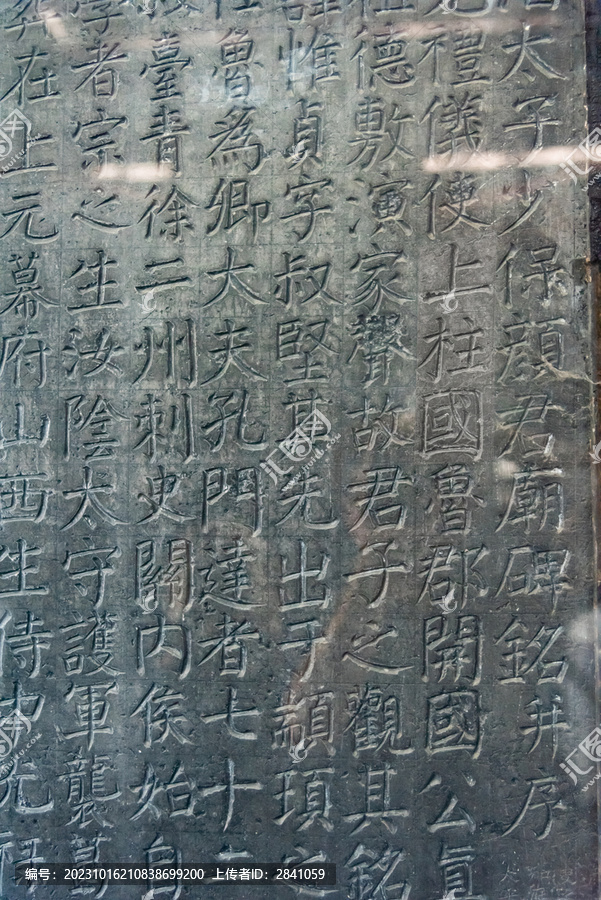 太子少保顏君廟碑銘并序
禮儀使上柱國魯郡開國公真
德敷演家聲故君子之觀其銘
諱惟貞字叔堅其先出于顓頊之
魯為卿大夫孔門達者七十二
臺青徐二州刺史關內侯始自
學者宗之生汝陰太守護軍襲葛
在上元幕府山西生侍中光祿
汇图网
编号:20231016210838699200 上传者ID:2841059